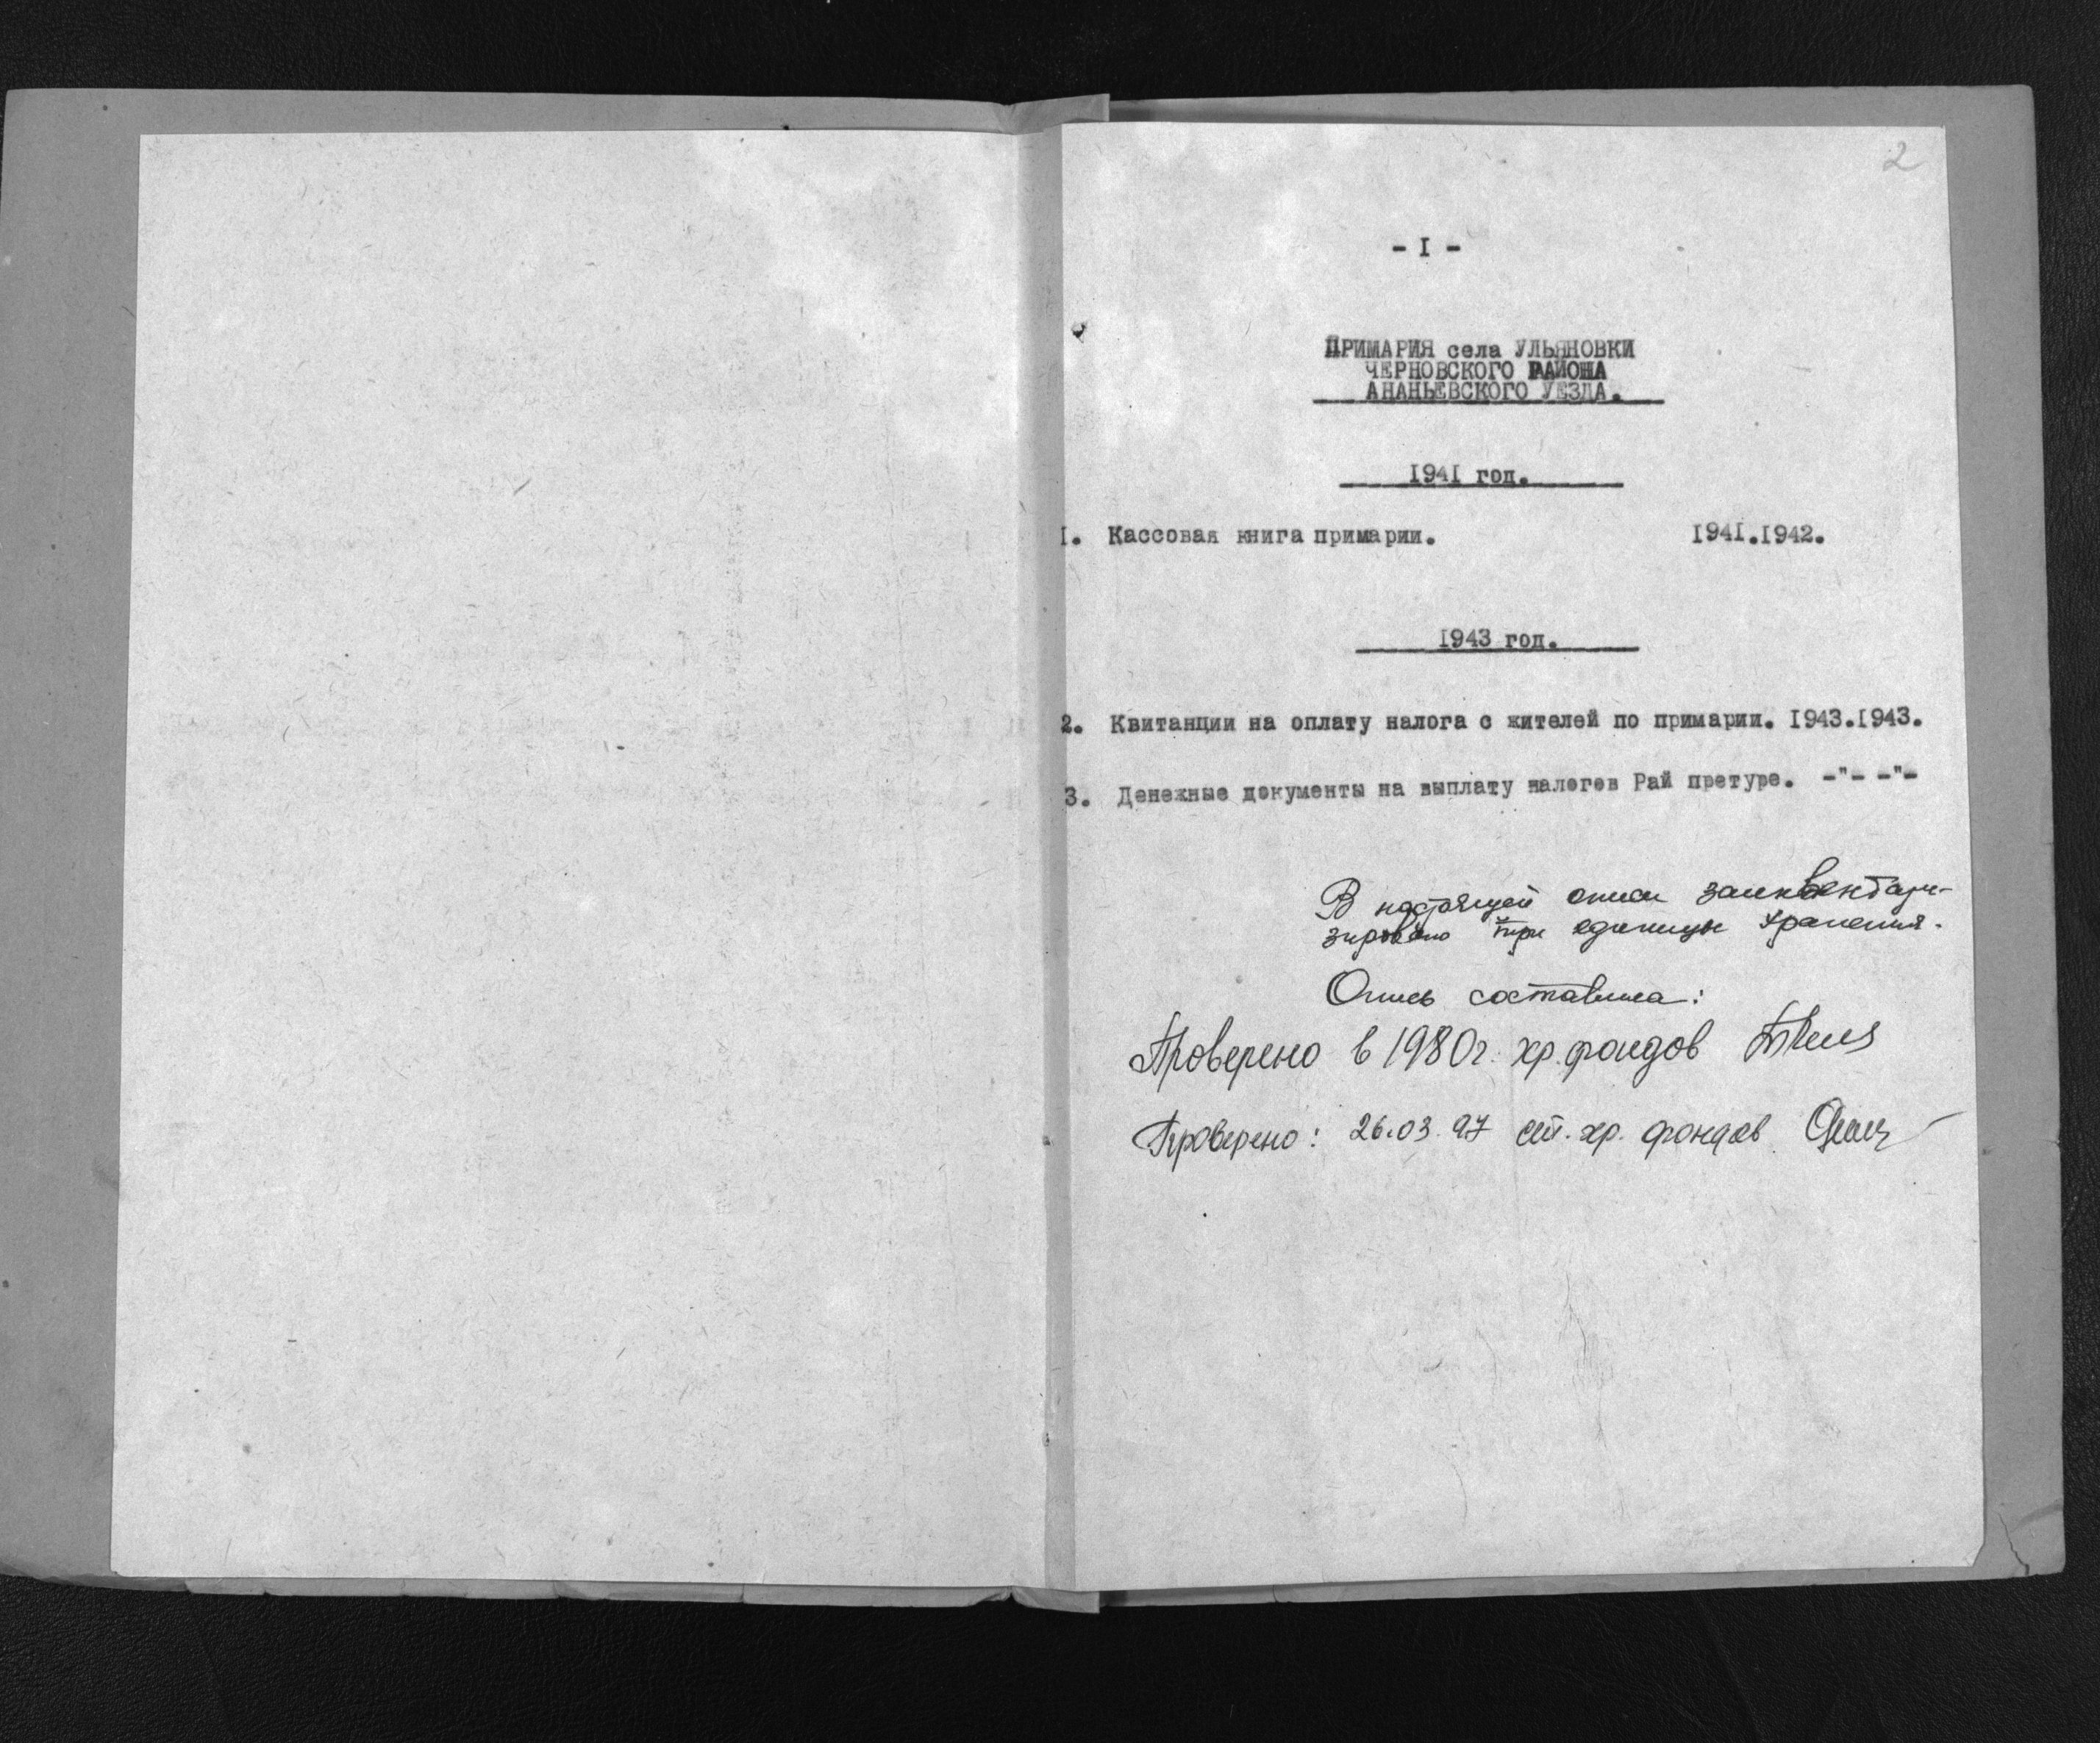 2
- I -
ПРИМАРИЯ села УЛЬЯНОВКИ
ЧЕРНОВСКОГО РАЙОНА
АНАНЬЕВСКОГО УЕЗДА.
I94I год.
I. Кассовая книга примарии. I94I.I942.
I943 год.
2. Квитанции на оплату налога с жителей по примарии. I943.I943.
3. Денежные документы на выплату налогов Рай претуре. -"- -"-
В настоящей описи заинвентари-
зировано три единицы хранения.
Опись составила:
Проверено в 1980г. хр. фондов
Проверено: 26.03.97 ст. хр. фондов